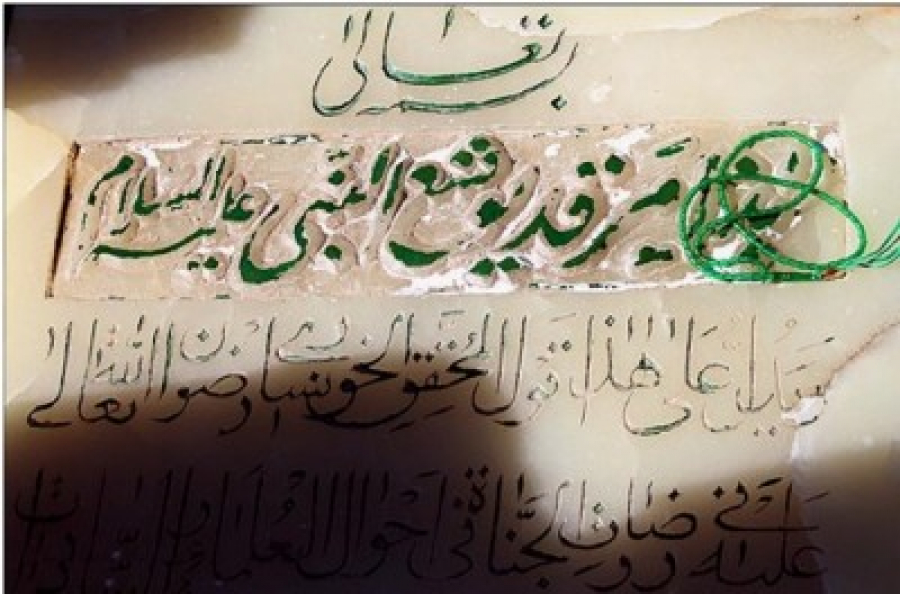 بسمه تعالی
هذا مرقد یوشع النبی علیه السلام
ویدل علی هذا قول المحقق الخونساری رضوان الله تعالی
علیه فی روضات الجناة فی احوال العلماء